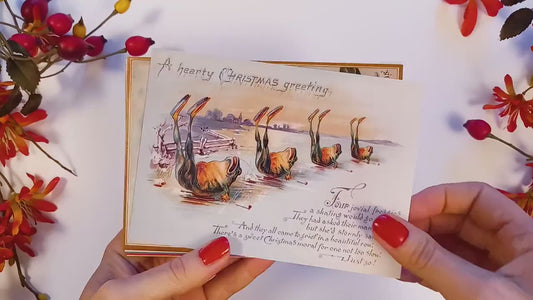 A hearty CHRISTMAS greeting,
Four jovial
a skating would go
They had asked their
but she'd sternly
And they all came to grief in a beautiful row,
There's a great Christmas moral for one not too slow.
Just so!